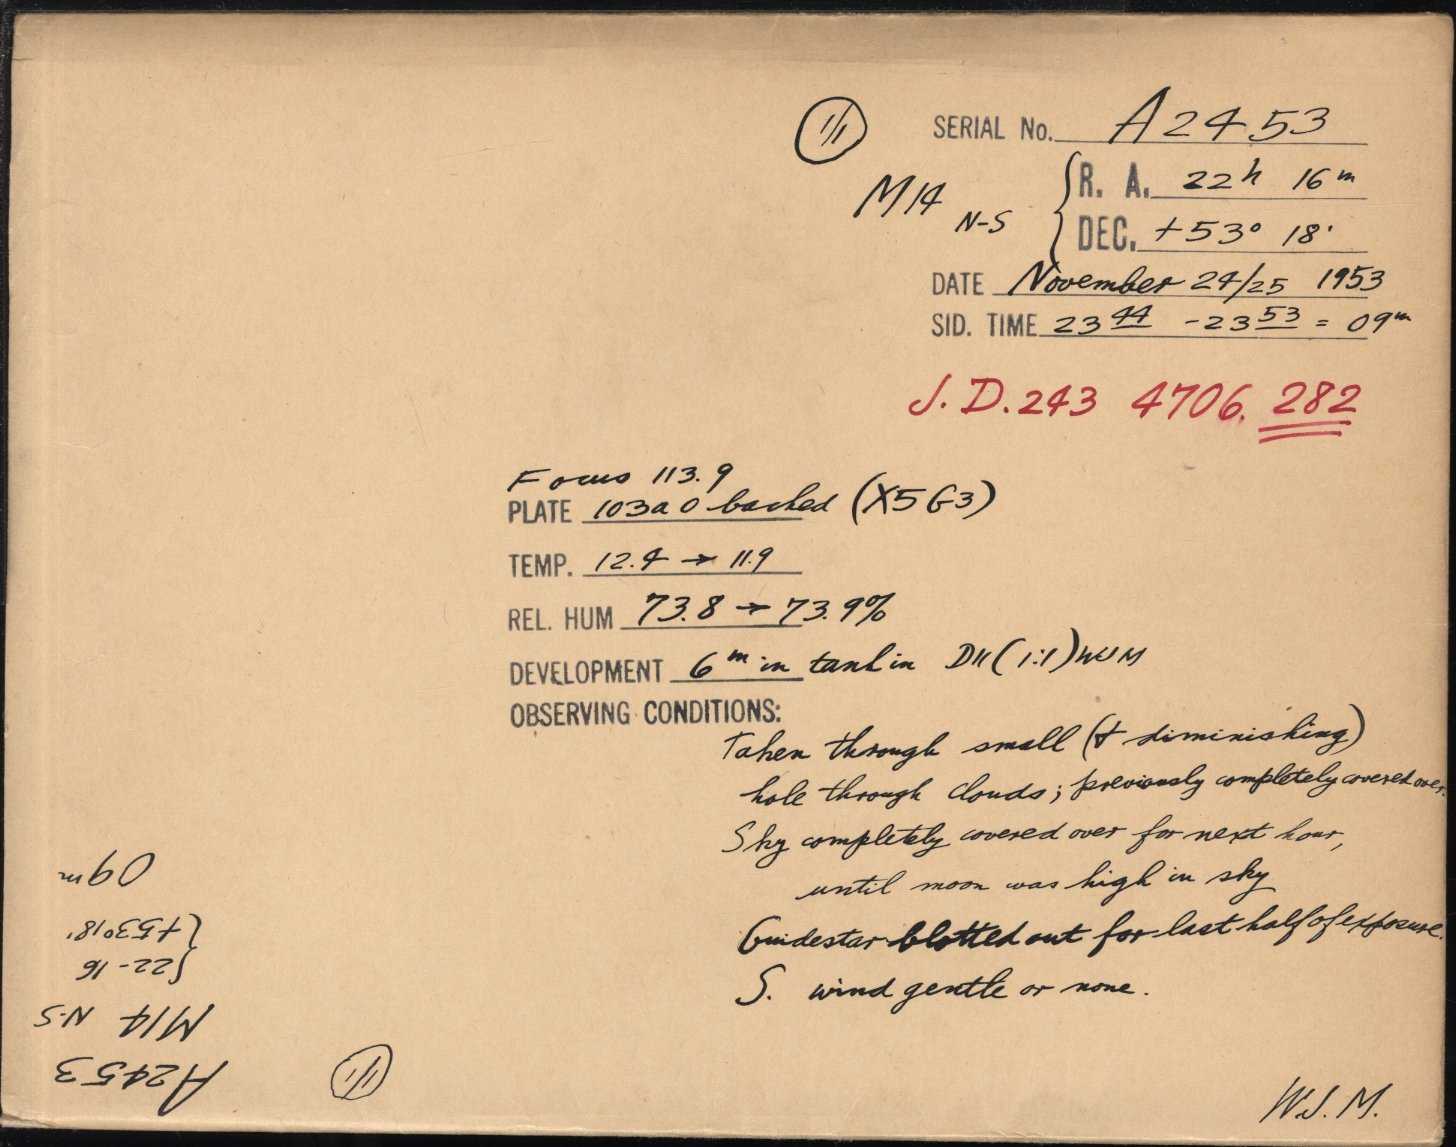 1/1 SERIAL No. A2453
M14 N-S { R. A. 22h 16m
DEC. +53° 18'
DATE November 24/25 1953
SID. TIME 23 44 - 23 53 = 09m
J.D. 243 4706.282
Focus 113.9
PLATE 103a O backed (X5G3)
TEMP. 12.4 → 11.9
REL. HUM 73.8 → 73.9%
DEVELOPMENT 6m in tank in D11 (1:1) WJM
OBSERVING CONDITIONS:
Taken through small (& diminishing)
hole through clouds; previously completely covered over.
Sky completely covered over for next hour,
until moon was high in sky
Guidestar blotted out for last half of exposure.
S. wind gentle or none.
W.J.M.
1/1 A2453
M14 N-S
{ 22-16
+53°18'
09m